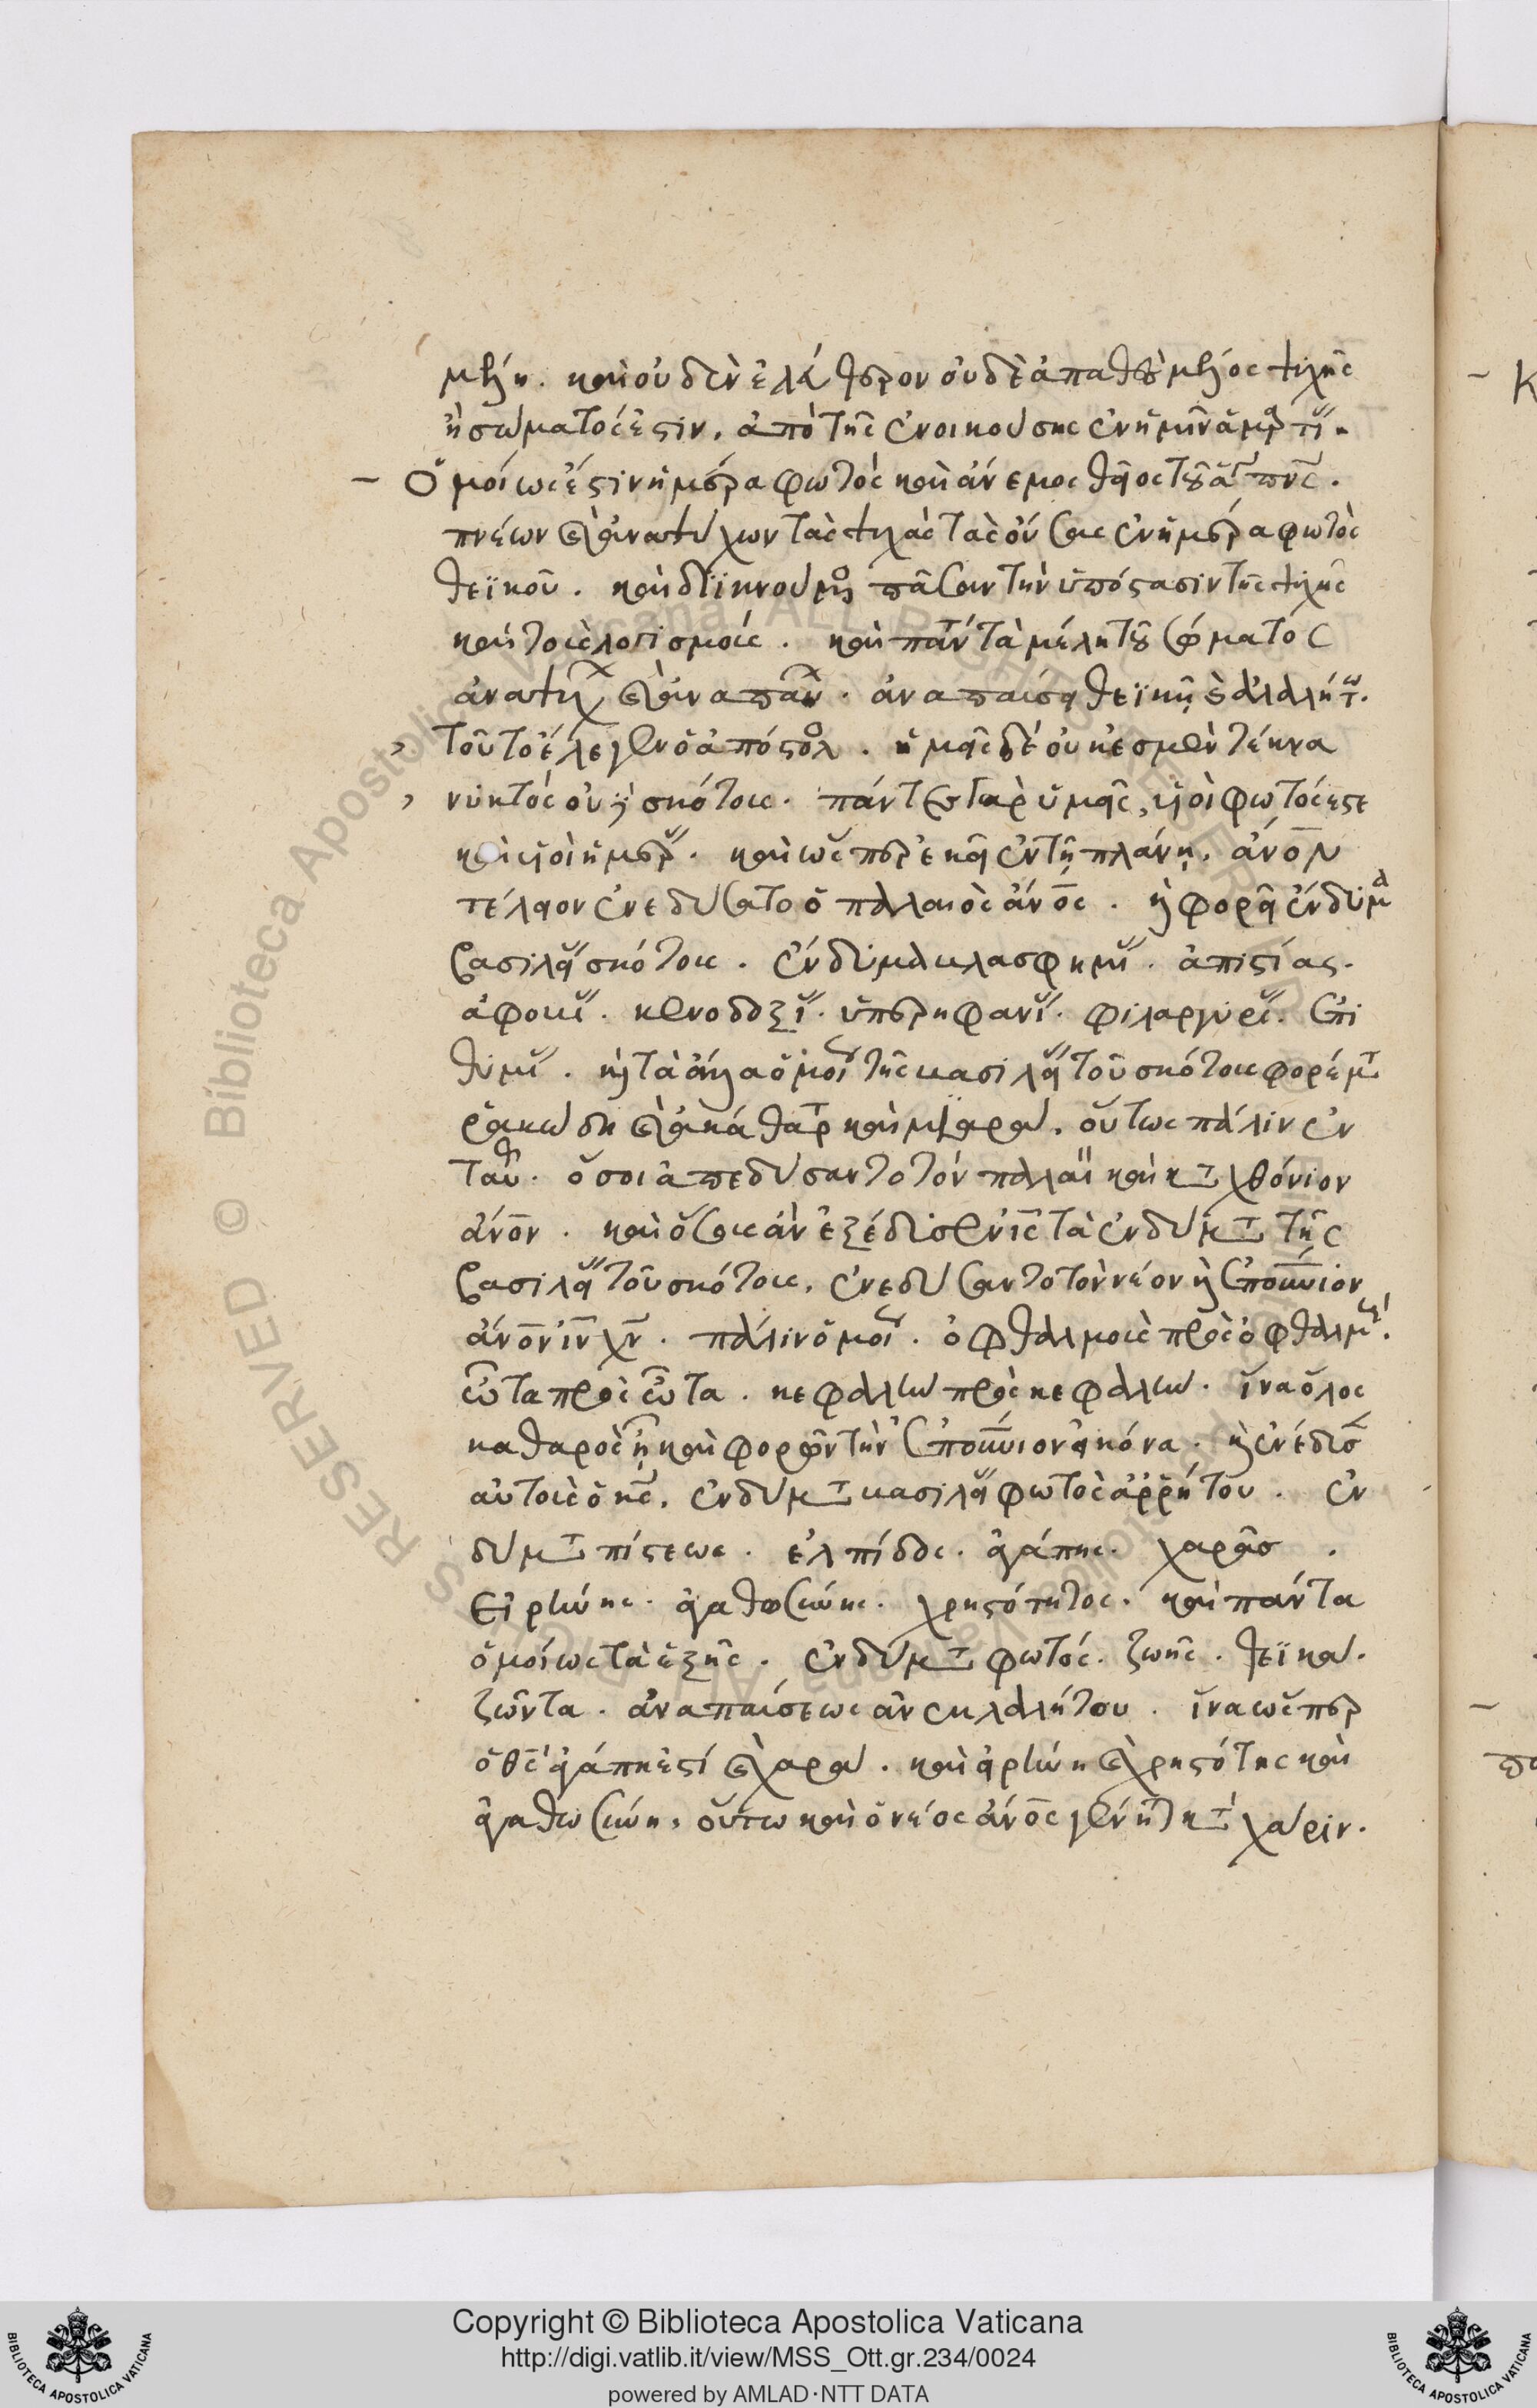 μέλη. καὶ οὐδὲν ἐλεύθερον οὐδὲ ἀπαθὲς μέλος ψυχῆς
ἢ σώματός ἐστιν. ἀπὸ τῆς ἐνοικούσης ἐν ἡμῖν ἁμαρτί.
Ὁμοίως ἐστὶν ἡμέρα φωτὸς καὶ ἄνεμος θεῖος τοῦ ἁγ πνς.
πνέων καὶ ἀναψύχων τὰς ψυχὰς τὰς οὔσας ἐν ἡμέρα φωτὸς
θεϊκοῦ. καὶ διϊκνούμενο πᾶσαν τὴν ὑπόστασιν τῆς ψυχῆς
καὶ τοὺς λογισμούς. καὶ πάντα τὰ μέλη τοῦ σώματος
ἀναψύχ καὶ ἀναπαύ. ἀναπαύσει θεϊκῇ καὶ ἀλαλήτ.
τοῦτο ἔλεγεν ὁ ἀπόστολ. ἡμεῖς δὲ οὐκ ἐσμὲν τέκνα
νυκτὸς οὐδὲ σκότους. πάντες γὰρ ὑμεῖς, υἱοὶ φωτός ἐστε
καὶ υἱοὶ ἡμέρ. καὶ ὥσπερ ἐκεῖ ἐν τῇ πλάνῃ. ἄνον
τέλειον ἐνεδύσατο ὁ παλαιὸς ἄνος. καὶ φορεῖ ἔνδυμα
βασιλεί σκότους. ἔνδυμα βλασφημί. ἀπιστίας.
ἀφοβί. κενοδοξί. ὑπερηφανί. φιλαργυρί. ἐπι
θυμί. καὶ τὰ ἄλλα ὁμοί τῆς βασιλεί τοῦ σκότους φορέματ
ῥακώδη καὶ ἀκάθαρτ καὶ μιαρά. οὕτως πάλιν ἐν
ταῦθ. ὅσοι ἀπεδύσαντο τὸν παλαι καὶ κατ χθόνιον
ἄνον. καὶ ὅσους ἂν ἐξέδυσεν ις τὰ ἐνδύματ τῆς
βασιλεί τοῦ σκότους. ἐνεδύσαντο τὸν νέον καὶ ἐπουνιον
ἄνον ιν χν. πάλιν ὁμοί. ὀφθαλμοὺς πρὸς ὀφθαλμ.
ὦτα πρὸς ὦτα. κεφαλὴν πρὸς κεφαλήν. ἵνα ὅλος
καθαρὸς ᾖ καὶ φορῶν τὴν ἐπουνιον εἰκόνα. καὶ ἐνέδυσ
αὐτοὺς ὁ κς. ἐνδύματ βασιλεί φωτὸς ἀῤῥήτου. ἐν
δύματ πίστεως. ἐλπίδος. ἀγάπης. χαρᾶσ.
Εἰρήνης. ἀγαθωσύνης. χρηστότητος. καὶ πάντα
ὁμοίως τὰ ἑξῆς. ἐνδύματ φωτός. ζωῆς. θεϊκά.
ζῶντα. ἀναπαύσεως ἀνεκλαλήτου. ἵνα ὥσπερ
ὁ θς ἀγάπη ἐστί καὶ χαρά. καὶ εἰρήνη καὶ χρηστότης καὶ
ἀγαθωσύνη. οὕτω καὶ ὁ νέος ἄνος γένητ κατ χάριν.
Copyright © Biblioteca Apostolica Vaticana
http://digi.vatlib.it/view/MSS_Ott.gr.234/0024
powered by AMLAD·NTT DATA